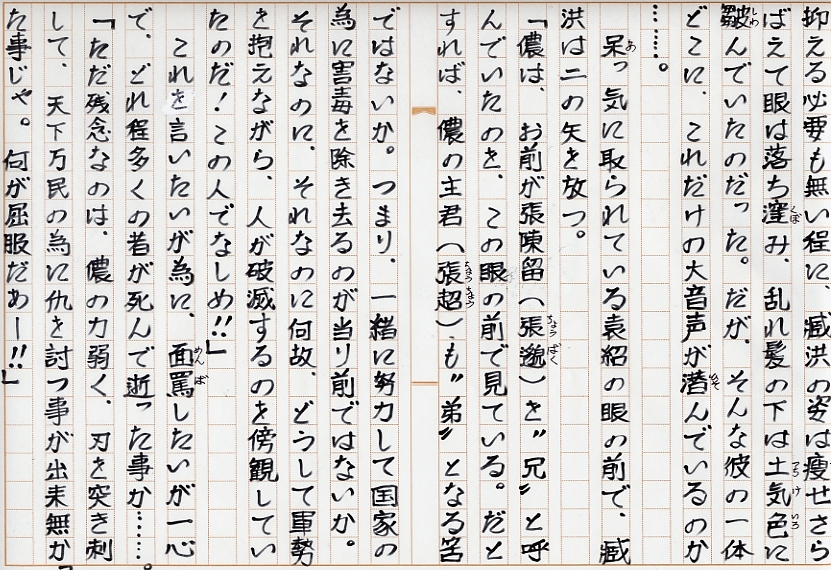 抑える必要も無い程に、臧洪の姿は痩せさら
ばえて眼は落ち窪み、乱れ髪の下は土気色に
皺んでいたのだった。だが、そんな彼の一体
どこに、これだけの大音声が潜んでいるのか
……。
呆っ気に取られている袁紹の眼の前で、臧
洪は二の矢を放つ。
「儂は、お前が張陳留（張邈）を〝兄〟と呼
んでいたのを、この眼の前で見ている。だと
すれば、儂の主君（張超）も〝弟〟となる筈
ではないか。つまり、一緒に努力して国家の
為に害毒を除き去るのが当り前ではないか。
それなのに、それなのに何故、どうして軍勢
を抱えながら、人が破滅するのを傍観してい
たのだ！この人でなしめ!!」
これを言いたいが為に、面罵したいが一心
で、どれ程多くの者が死んで逝った事か……。
「ただ残念なのは、儂の力弱く、刃を突き刺
して、天下万民の為に仇を討つ事が出来無か
た事じゃ。何が屈服だあー!!」